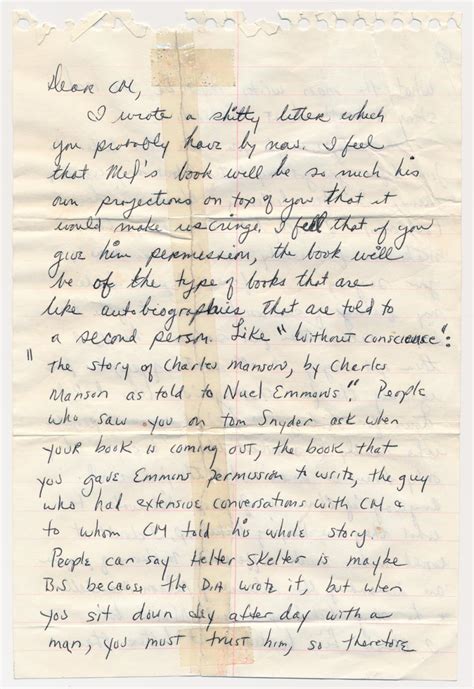 Dear CM,
I wrote a shitty letter which
you probably have by now. I feel
that Mel's book will be so much his
own projections on top of you that it
would make us cringe. I feel that if you
give him permission, the book will
be of the type of books that are
like autobiographies that are told to
a second person. Like "Without conscience":
" the story of Charles Manson, by Charles
Manson as told to Nuel Emmons". People
who saw you on Tom Snyder ask when
YOUR book is coming out, the book that
you gave Emmons permission to write, the guy
who had extensive conversations with CM &
to whom CM told his whole story.
People can say Helter Skelter is maybe
B.S because the D.A wrote it, but when
you sit down day after day with a
man, you must trust him, so therefore